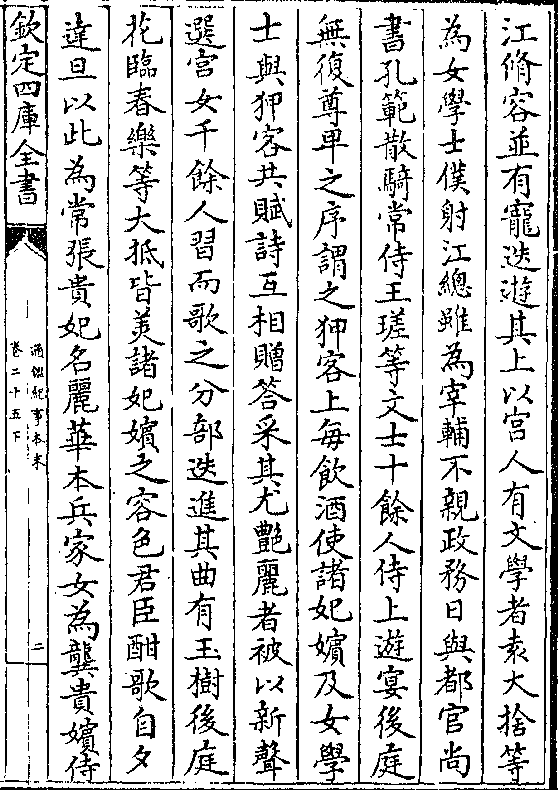 江脩容並有寵迭遊其上以宮人有文學者袁大捨等
為女學士僕射江總雖為宰輔不親政務日與都官尚
書孔範散騎常侍王瑳等文士十餘人侍上遊宴後庭
無復尊卑之序謂之狎客上每飲酒使諸妃嬪及女學
士與狎客共賦詩互相贈答采其尤艷麗者被以新聲
選宮女千餘人習而歌之分部迭進其曲有玉樹後庭
花臨春樂等大抵皆美諸妃嬪之容色君臣酣歌自夕
達旦以此為常張貴妃名麗華本兵家女為龔貴嬪侍
欽定四庫全書
通鑑紀事本末
卷二十五下
二